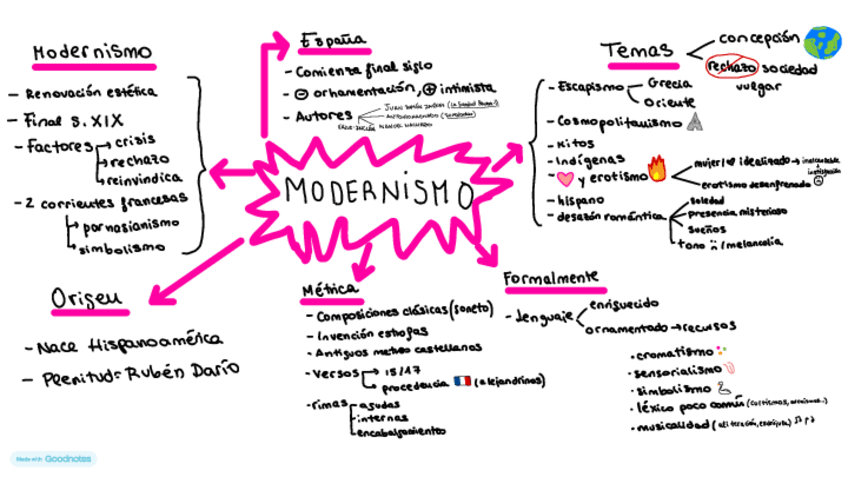 Modernismo
- Renovación estética
- Final s. XIX
- Factores crisis
rechazo
reinvindica
- 2 corrientes francesas
parnasianismo
simbolismo
España
- Comienza final siglo
- ⊖ ornamentación, ⊕ intimista
- Autores
Temas
concepción
rechazo sociedad
vulgar
- Escapismo Grecia
Oriente
- Cosmopolitanismo
- Ritos
- Indígenas
- y erotismo
mujer/ idealizado → inalcanzable
erotismo desenfrenado
- hispano
- desazón romántica
soledad
presencia misterioso
sueños
tono /melancolía
MODERNISMO
Origen
- Nace Hispanoamérica
- Plenitud= Rubén Darío
Métrica
- Composiciones clásicas (soneto)
- Invención estrofas
- Antiguos metros castellanos
- Versos 15/17
procedencia (alejandrinos)
- rimas agudas
internas
encabalgamientos
Formalmente
- Lenguaje enriquecido
ornamentado → recursos
• cromatismo
• sensorialismo
• simbolismo
• léxico poco común (cultismos,
• musicalidad (aliteración,
Made with Goodnotes